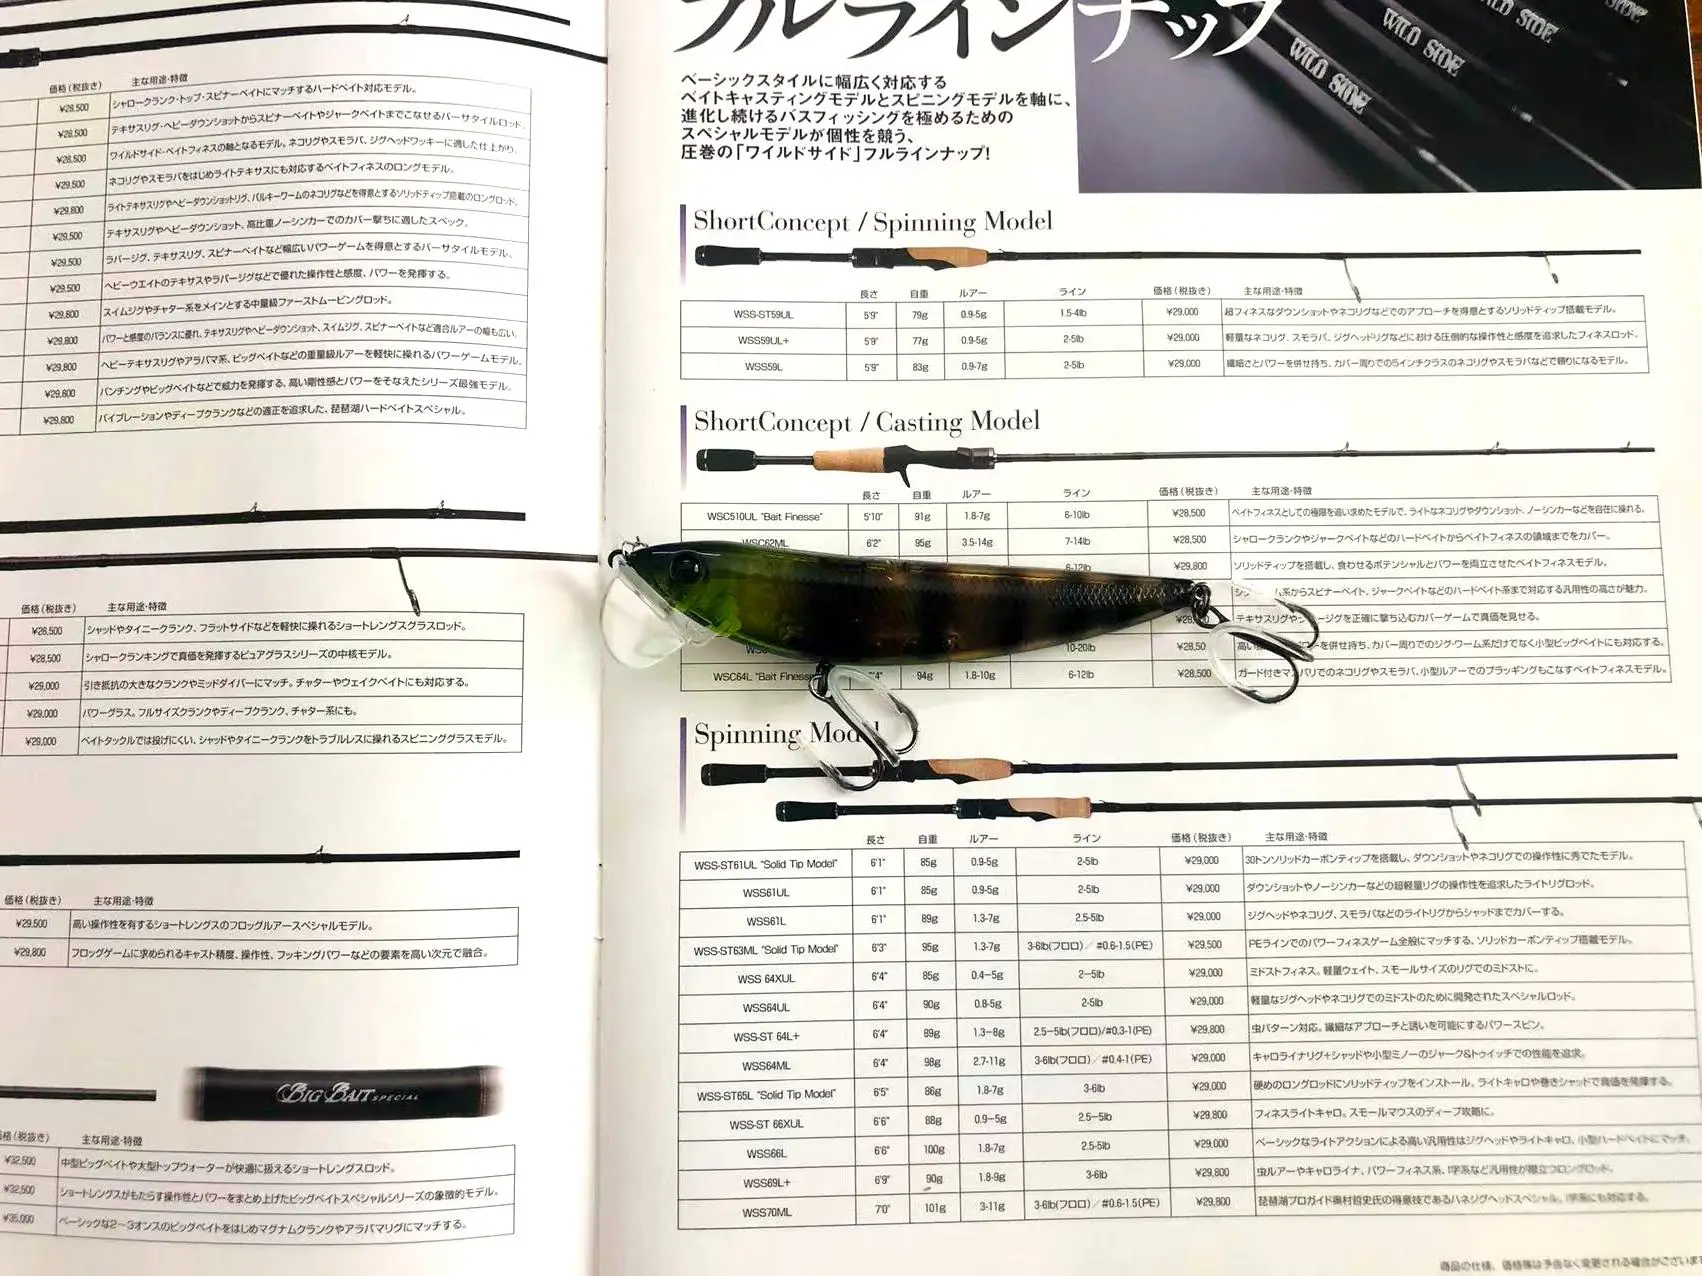 価格(税抜き) 主な用途・特徴
¥28,500 シャロークランク・トップ・スピナーベイトにマッチするハードベイト対応モデル。
¥28,500 テキサスリグ・ヘビーダウンショットからスピナーベイトやジャークベイトまでこなせるバーサタイルロッド。
¥28,500 ワイルドサイド・ベイトフィネスの軸となるモデル。ネコリグやスモラバ、ジグヘッドワッキーに適した仕上がり。
¥29,500 ネコリグやスモラバをはじめライトテキサスにも対応するベイトフィネスのロングモデル。
¥29,800 ライトテキサスリグやヘビーダウンショットリグ、バルキーワームのネコリグなどを得意とするソリッドティップ搭載のロングロッド。
¥29,500 テキサスリグやヘビーダウンショット、高比重ノーシンカーでのカバー撃ちに適したスペック。
¥29,500 ラバージグ、テキサスリグ、スピナーベイトなど幅広いパワーゲームを得意とするバーサタイルモデル。
¥29,500 ヘビーウエイトのテキサスやラバージグなどで優れた操作性と感度、パワーを発揮する。
¥29,800 スイムジグやチャター系をメインとする中量級ファーストムービングロッド。
¥29,800 パワーと感度のバランスに優れ、テキサスリグやヘビーダウンショット、スイムジグ、スピナーベイトなど適合ルアーの幅も広い。
¥29,800 ヘビーテキサスリグやアラバマ系、ビッグベイトなどの重量級ルアーを軽快に操れるパワーゲームモデル。
¥29,800 パンチングやビッグベイトなどで威力を発揮する、高い剛性感とパワーをそなえたシリーズ最強モデル。
¥29,800 バイブレーションやディープクランクなどの適正を追求した、琵琶湖ハードベイトスペシャル。
価格(税抜き) 主な用途・特徴
¥28,500 シャッドやタイニークランク、フラットサイドなどを軽快に操れるショートレングスグラスロッド。
¥28,500 シャロークランキングで真価を発揮するピュアグラスシリーズの中核モデル。
¥29,000 引き抵抗の大きなクランクやミッドダイバーにマッチ。チャターやウェイクベイトにも対応する。
¥29,000 パワーグラス。フルサイズクランクやディープクランク、チャター系にも。
¥29,000 ベイトタックルでは投げにくい、シャッドやタイニークランクをトラブルレスに操れるスピニンググラスモデル。
価格(税抜き) 主な用途・特徴
¥29,500 高い操作性を有するショートレングスのフロッグルアースペシャルモデル。
¥29,800 フロッグゲームに求められるキャスト精度、操作性、フッキングパワーなどの要素を高い次元で融合。
BIG BAIT SPECIAL
格(税抜き) 主な用途・特徴
¥32,500 中型ビッグベイトや大型トップウォーターが快適に扱えるショートレングスロッド。
¥32,500 ショートレングスがもたらす操作性とパワーをまとめ上げたビッグベイトスペシャルシリーズの象徴的モデル。
¥35,000 ベーシックな2〜3オンスのビッグベイトをはじめマグナムクランクやアラバマリグにマッチする。
フルラインナップ
WILD SIDE WILD SIDE WILD SIDE SIDE
ベーシックスタイルに幅広く対応する
ベイトキャスティングモデルとスピニングモデルを軸に、
進化し続けるバスフィッシングを極めるための
スペシャルモデルが個性を競う、
圧巻の「ワイルドサイド」フルラインナップ!
ShortConcept / Spinning Model
長さ 自重 ルアー ライン 価格(税抜き) 主な用途・特徴
WSS-ST59UL 5'9" 79g 0.9-5g 1.5-4lb ¥29,000 超フィネスなダウンショットやネコリグなどでのアプローチを得意とするソリッドティップ搭載モデル。
WSS59UL+ 5'9" 77g 0.9-5g 2-5lb ¥29,000 軽量なネコリグ、スモラバ、ジグヘッドリグなどにおける圧倒的な操作性と感度を追求したフィネスロッド。
WSS59L 5'9" 83g 0.9-7g 2-5lb ¥29,000 繊細さとパワーを併せ持ち、カバー周りでの5インチクラスのネコリグやスモラバなどで頼りになるモデル。
ShortConcept / Casting Model
長さ 自重 ルアー ライン 価格(税抜き) 主な用途・特徴
WSC510UL "Bait Finesse" 5'10" 91g 1.8-7g 6-10lb ¥28,500 ベイトフィネスとしての極限を追い求めたモデルで、ライトなネコリグやダウンショット、ノーシンカーなどを自在に操れる。
WSC62ML 6'2" 95g 3.5-14g 7-14lb ¥28,500 シャロークランクやジャークベイトなどのハードベイトからベイトフィネスの領域までをカバー。
6-12lb ¥29,800 ソリッドティップを搭載し、食わせるポテンシャルとパワーを両立させたベイトフィネスモデル。
系からスピナーベイト、ジャークベイトなどのハードベイト系まで対応する汎用性の高さが魅力。
テキサスリグや ージグを正確に撃ち込むカバーゲームで真価を見せる。
10-20lb ¥28,50 高い を併せ持ち、カバー周りでのジグ・ワーム系だけでなく小型ビッグベイトにも対応する。
WSC64L "Bait Finesse 94g 1.8-10g 6-12lb ¥28,500 ガード付きマス バリでのネコリグやスモラバ、小型ルアーでのプラッギングもこなすベイトフィネスモデル。
Spinning Mod
長さ 自重 ルアー ライン 価格(税抜き) 主な用途・特徴
WSS-ST61UL "Solid Tip Model" 6'1" 85g 0.9-5g 2-5lb ¥29,000 30トンソリッドカーボンティップを搭載し、ダウンショットやネコリグでの操作性に秀でたモデル。
WSS61UL 6'1" 85g 0.9-5g 2-5lb ¥29,000 ダウンショットやノーシンカーなどの超軽量リグの操作性を追求したライトリグロッド。
WSS61L 6'1" 89g 1.3-7g 2.5-5lb ¥29,000 ジグヘッドやネコリグ、スモラバなどのライトリグからシャッドまでカバーする。
WSS-ST63ML "Solid Tip Model" 6'3" 95g 1.3-7g 3-6lb(フロロ)／#0.6-1.5(PE) ¥29,500 PEラインでのパワーフィネスゲーム全般にマッチする、ソリッドカーボンティップ搭載モデル。
WSS 64XUL 6'4" 85g 0.4−5g 2−5lb ¥29,000 ミドストフィネス。軽量ウェイト、スモールサイズのリグでのミドストに。
WSS64UL 6'4" 90g 0.8-5g 2-5lb ¥29,000 軽量なジグヘッドやネコリグでのミドストのために開発されたスペシャルロッド。
WSS-ST 64L+ 6'4" 89g 1.3−8g 2.5−5lb(フロロ)/#0.3-1(PE) ¥29,800 虫パターン対応。繊細なアプローチと誘いを可能にするパワースピン。
WSS64ML 6'4" 98g 2.7-11g 3-6lb(フロロ)／#0.4-1(PE) ¥29,000 キャロライナリグ+シャッドや小型ミノーのジャーク&トゥイッチでの性能を追求。
WSS-ST65L "Solid Tip Model" 6'5" 86g 1.8-7g 3-6lb ¥29,000 硬めのロングロッドにソリッドティップをインストール。ライトキャロや巻きシャッドで真価を発揮する。
WSS-ST 66XUL 6'6" 88g 0.9−5g 2.5−5lb ¥29,800 フィネスライトキャロ。スモールマウスのディープ攻略に。
WSS66L 6'6" 100g 1.8-7g 2.5-5lb ¥29,000 ベーシックなライトアクションによる高い汎用性はジグヘッドやライトキャロ、小型ハードベイトにマッチ。
WSS69L+ 6'9" 90g 1.8-9g 3-6lb ¥29,800 虫ルアーやキャロライナ、パワーフィネス系、I字系など汎用性が際立つロングロッド。
WSS70ML 7'0" 101g 3-11g 3-6lb(フロロ)／#0.6-1.5(PE) ¥29,800 琵琶湖プロガイド奥村哲史氏の得意技であるハネジグヘッドスペシャル。I字系にも対応する。
商品の仕様、価格等は予告なく変更される場合がございます